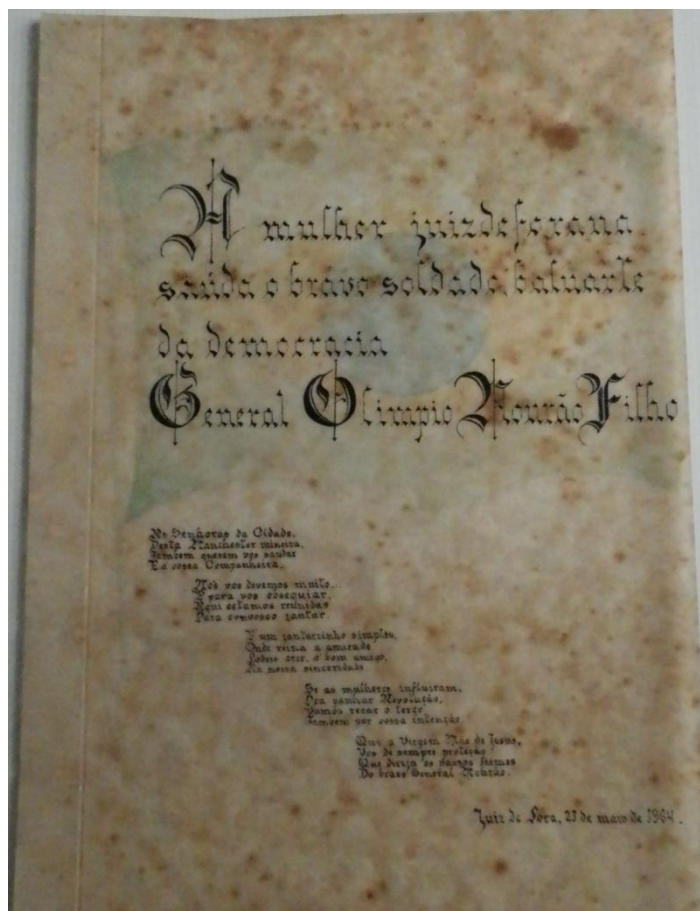 A mulher juizdeforana
saúda o bravo soldado, baluarte
da democracia
General Olimpio Mourão Filho
As Senhoras da Cidade,
Desta Manchester mineira,
Também querem vos saudar
E a vossa Companheira.
Nós vos devemos muito...
E para vos obsequiar,
Aqui estamos reunidas
Para convosco jantar.
É um jantarzinho simples,
Onde reina a amizade
Podeis crer, ó bom amigo,
Na nossa sinceridade
Se as mulheres influiram,
Pra ganhar Revolução,
Vamos rezar o terço,
Também por vossa intenção.
Que a Virgem Mãe de Jesus,
Vos dê sempre proteção
Que dirija os passos firmes
Do bravo General Mourão.
Juiz de Fora, 23 de maio de 1964.